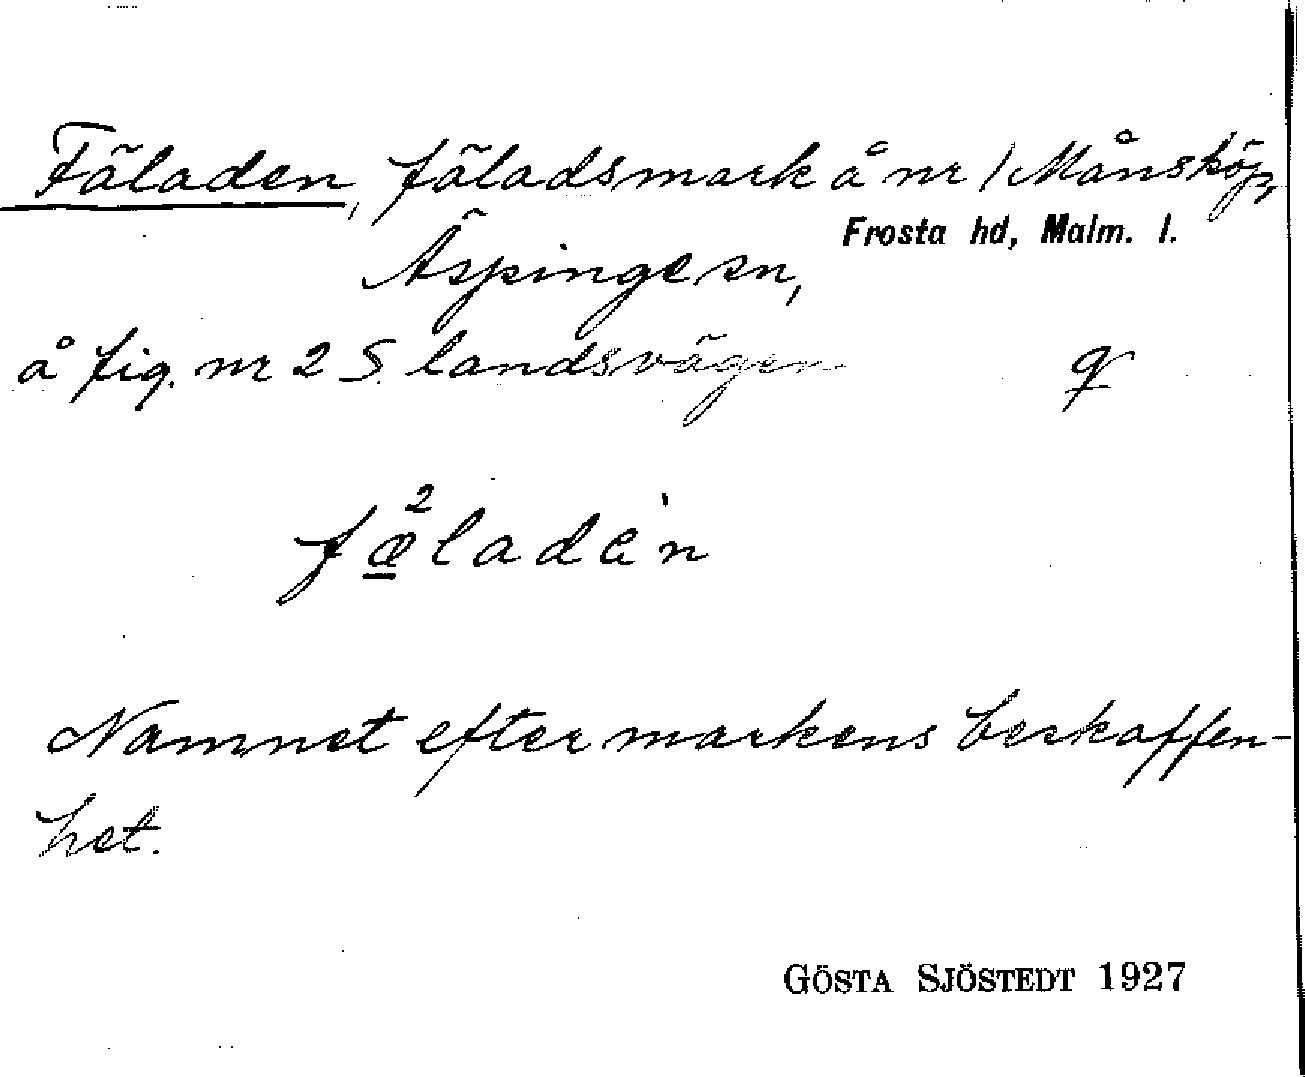 Fäladen, fäladsmark å nr 1 Månsköp,
Frosta hd, Malm. l.
Äspinge sn,
å fig. nr 2 S. landsvägen q
fæ²ladėn
Namnet efter markens beskaffen-
het.
GÖSTA SJÖSTEDT 1927